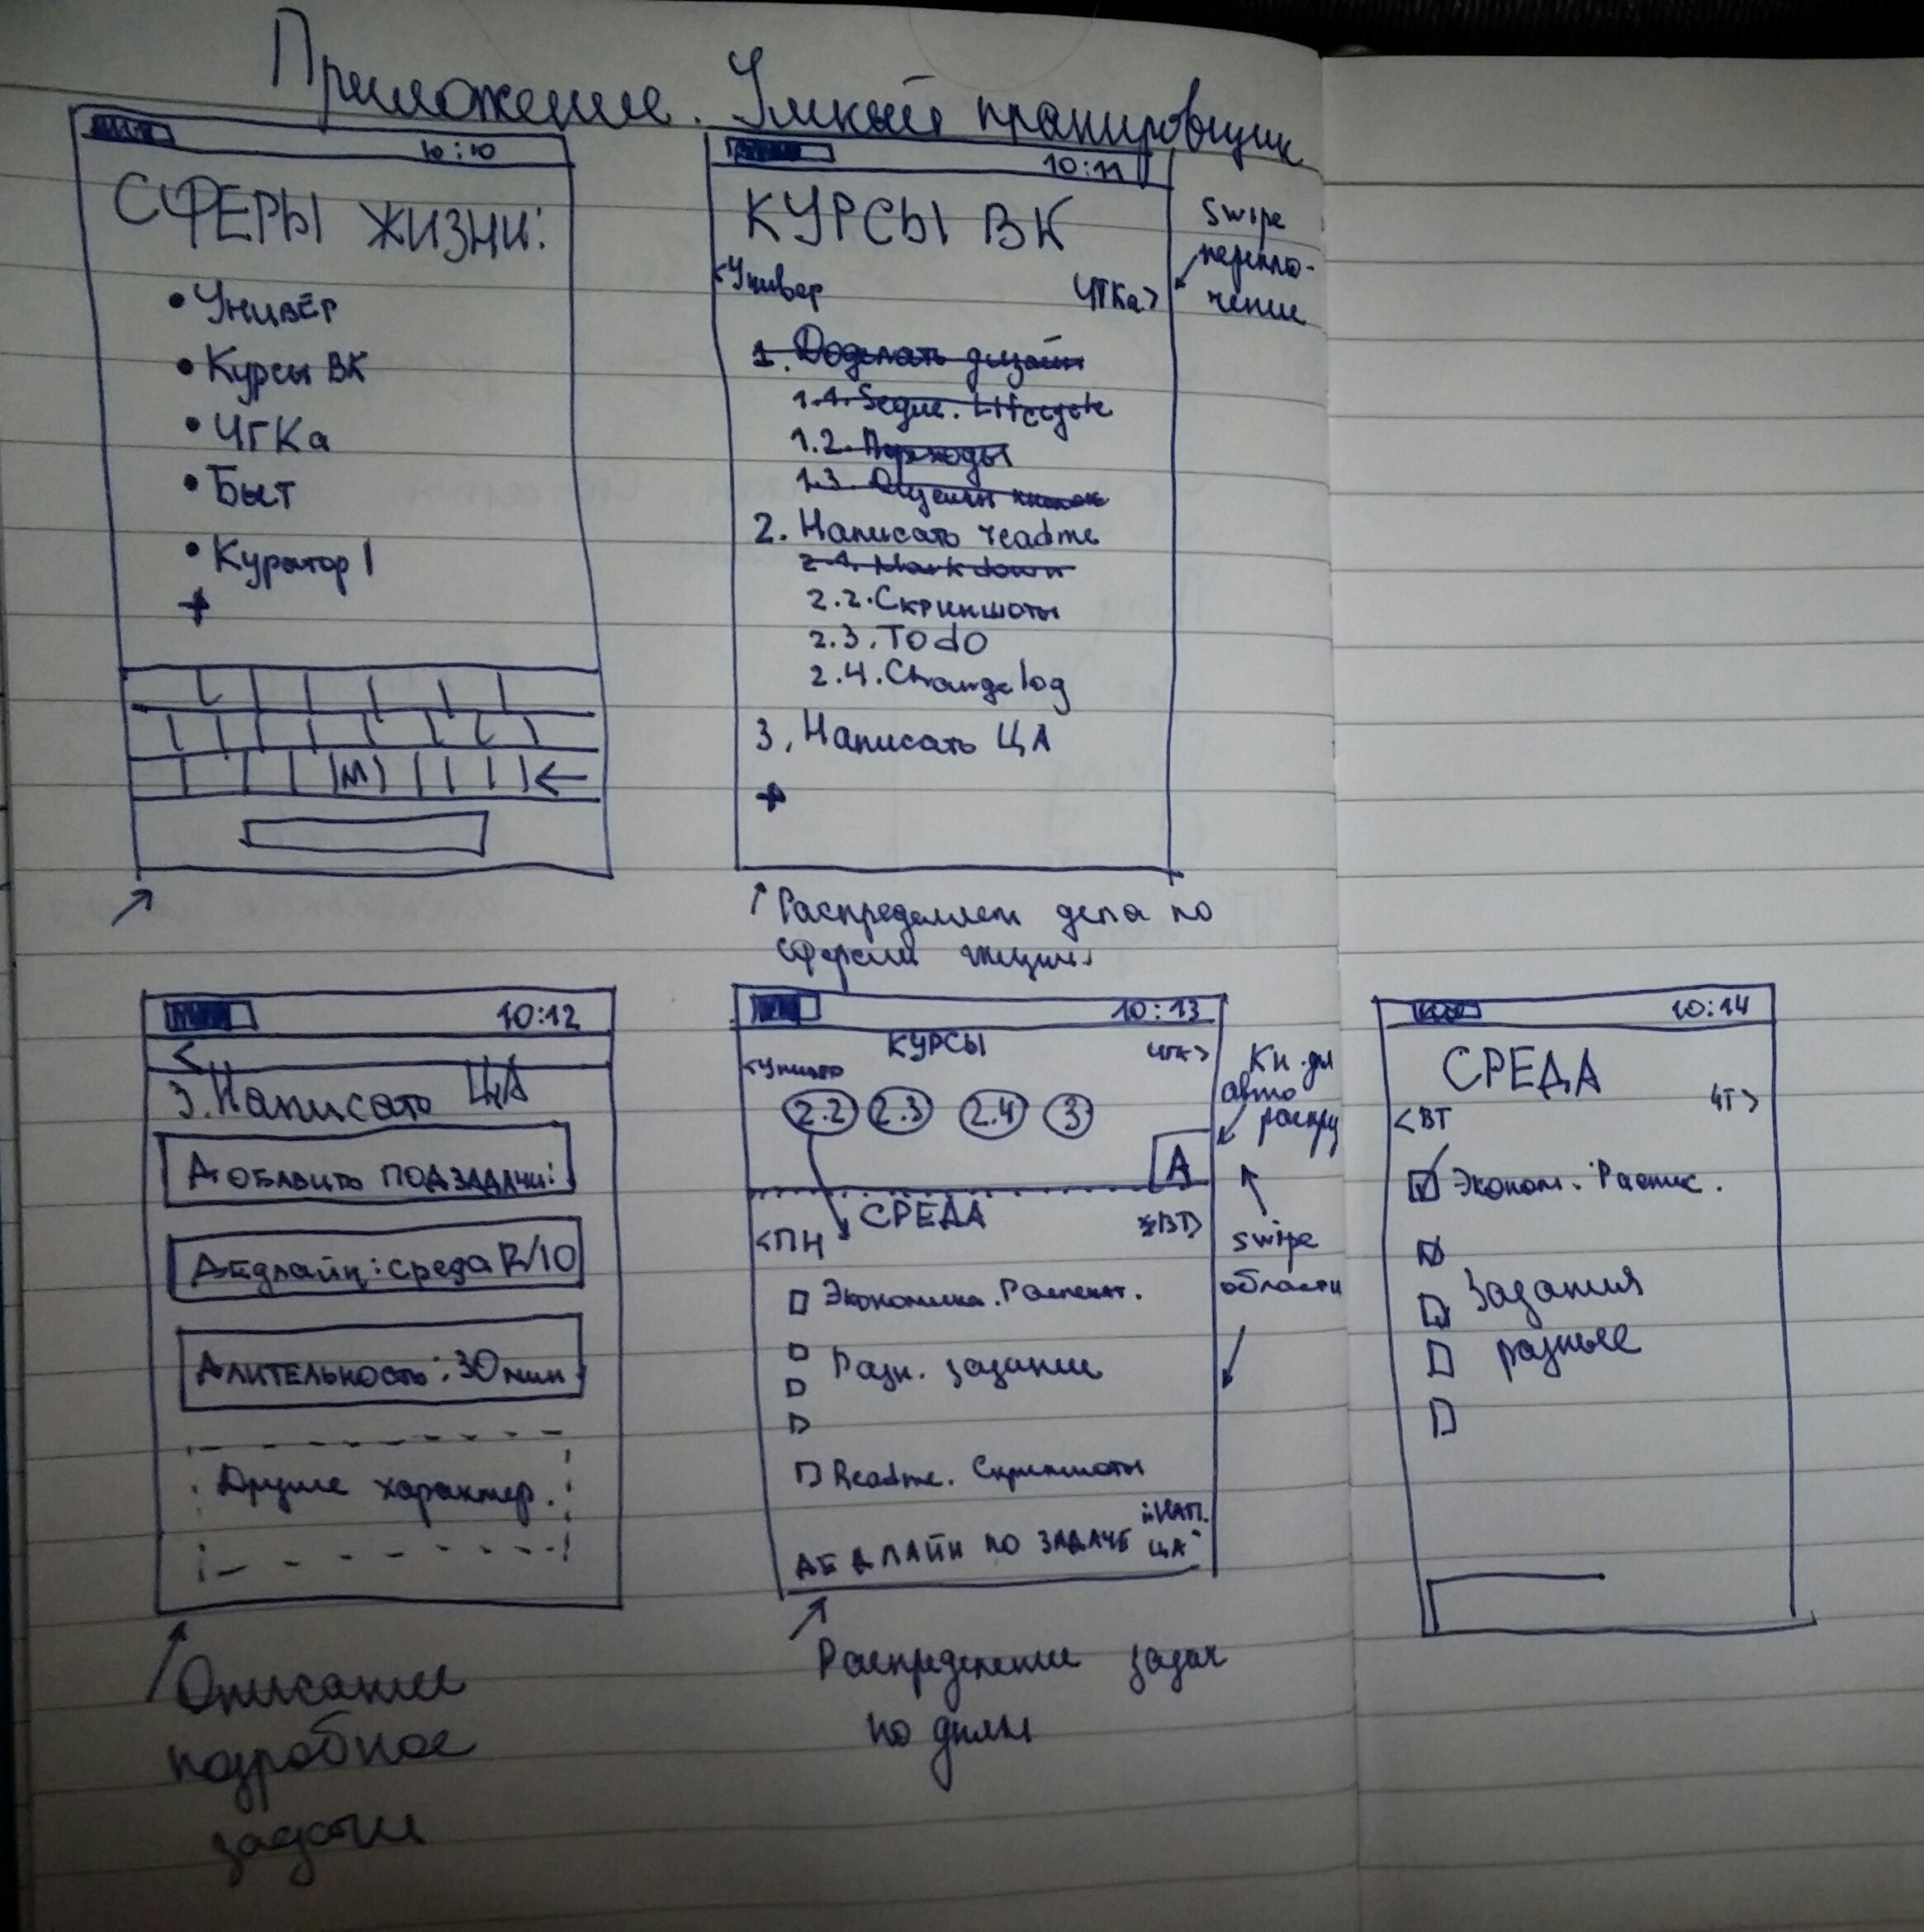 Приложение. Умный планировщик
10:10
СФЕРЫ ЖИЗНИ:
• Универ
• Курсы ВК
• ЧГКа
• Быт
• Куратор 1
+
М
←
10:11
КУРСЫ ВК
<Универ
ЧГКа>
1. Доделать дизайн
1.1. Segue. Lifecycle
1.2. Переходы
1.3. кнопок
2. Написать readme
2.1. Markdown
2.2. Скриншоты
2.3. Todo
2.4. Changelog
3. Написать ЦА
+
Swipe
переклю-
чение
Распределяем дела по
сферам жизни
10:12
<
3. Написать ЦА
ДОБАВИТЬ ПОДЗАДАЧИ:
ДЕДЛАЙН: среда 12/10
ДЛИТЕЛЬНОСТЬ: 30 мин
Другие характер.
Описание
подробное
задачи
10:13
КУРСЫ
<Универ
ЧГК>
2.2 2.3 2.4 3
А
СРЕДА
<ПН
ВТ>
Экономика. Распечат.
Разн. задания
Readme. Скриншоты
ДЕДЛАЙН ПО ЗАДАЧЕ "НАП.
ЦА"
Кн. для
авто
распр
swipe
области
Распределение задач
по дням
10:14
СРЕДА
<ВТ
ЧТ>
Эконом. Распис.
Задания
разные